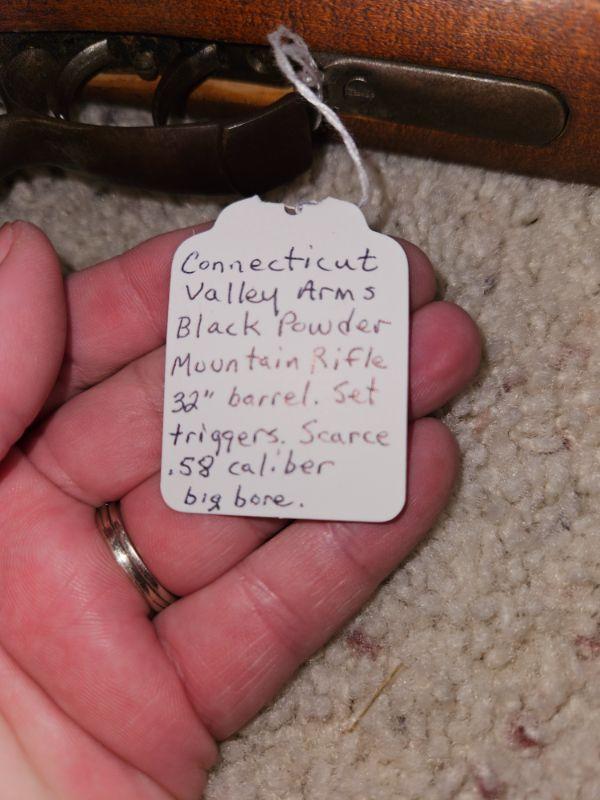 Connecticut
Valley Arms
Black Powder
Mountain Rifle
32" barrel. Set
triggers. Scarce
.58 caliber
big bore.